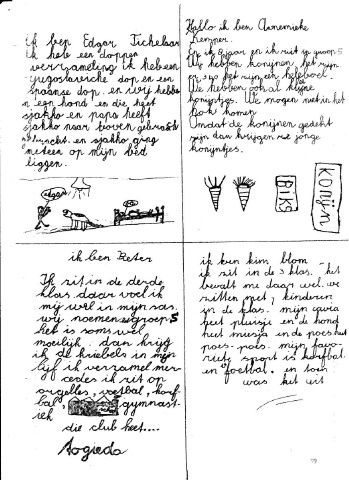 ik ben Edgar Tichelaar
ik heb een doppen
verzameling ik heb een
yugoslavische dop en een
spaanse dop. en wij hebben
een hond en die heet
sjakko en paps heeft
sjakko naar boven gebracht
en sjakko ging
meteen op mijn bed
liggen.
Hallo ik ben Annemieke
Kemper.
En ik 8 jaar en ik zit in groep 5
We hebben konijnen, het zijn
We hebben ook al kleine
konijntjes. We mogen niet in het
hok komen
Omdat de konijnen gedekt
zijn dan krijgen we jonge
konijntjes.
BIKS
KONIJN
ik ben Peter
Ik zit in de derde
klas daar voel ik
mij wel in mijn sas.
wij noemen groep 5
het is soms wel
moeilijk. dan krijg
ik de kriebels in mijn
lijf ik verzamel mer-
cedes ik zit op
orgelles, voetbal, korf-
bal, gymnast-
iek
die club heet....
ik ben kim blom
ik zit in de 3 klas. het
bevalt me daar wel. we
zitten met kinderen
in de klas. mijn cavia
heet pluisje en de hond
heet miesje en de poes het
poes-poes. mijn favo-
riete sport is korfbal.
en voetbal. en toen
was het uit